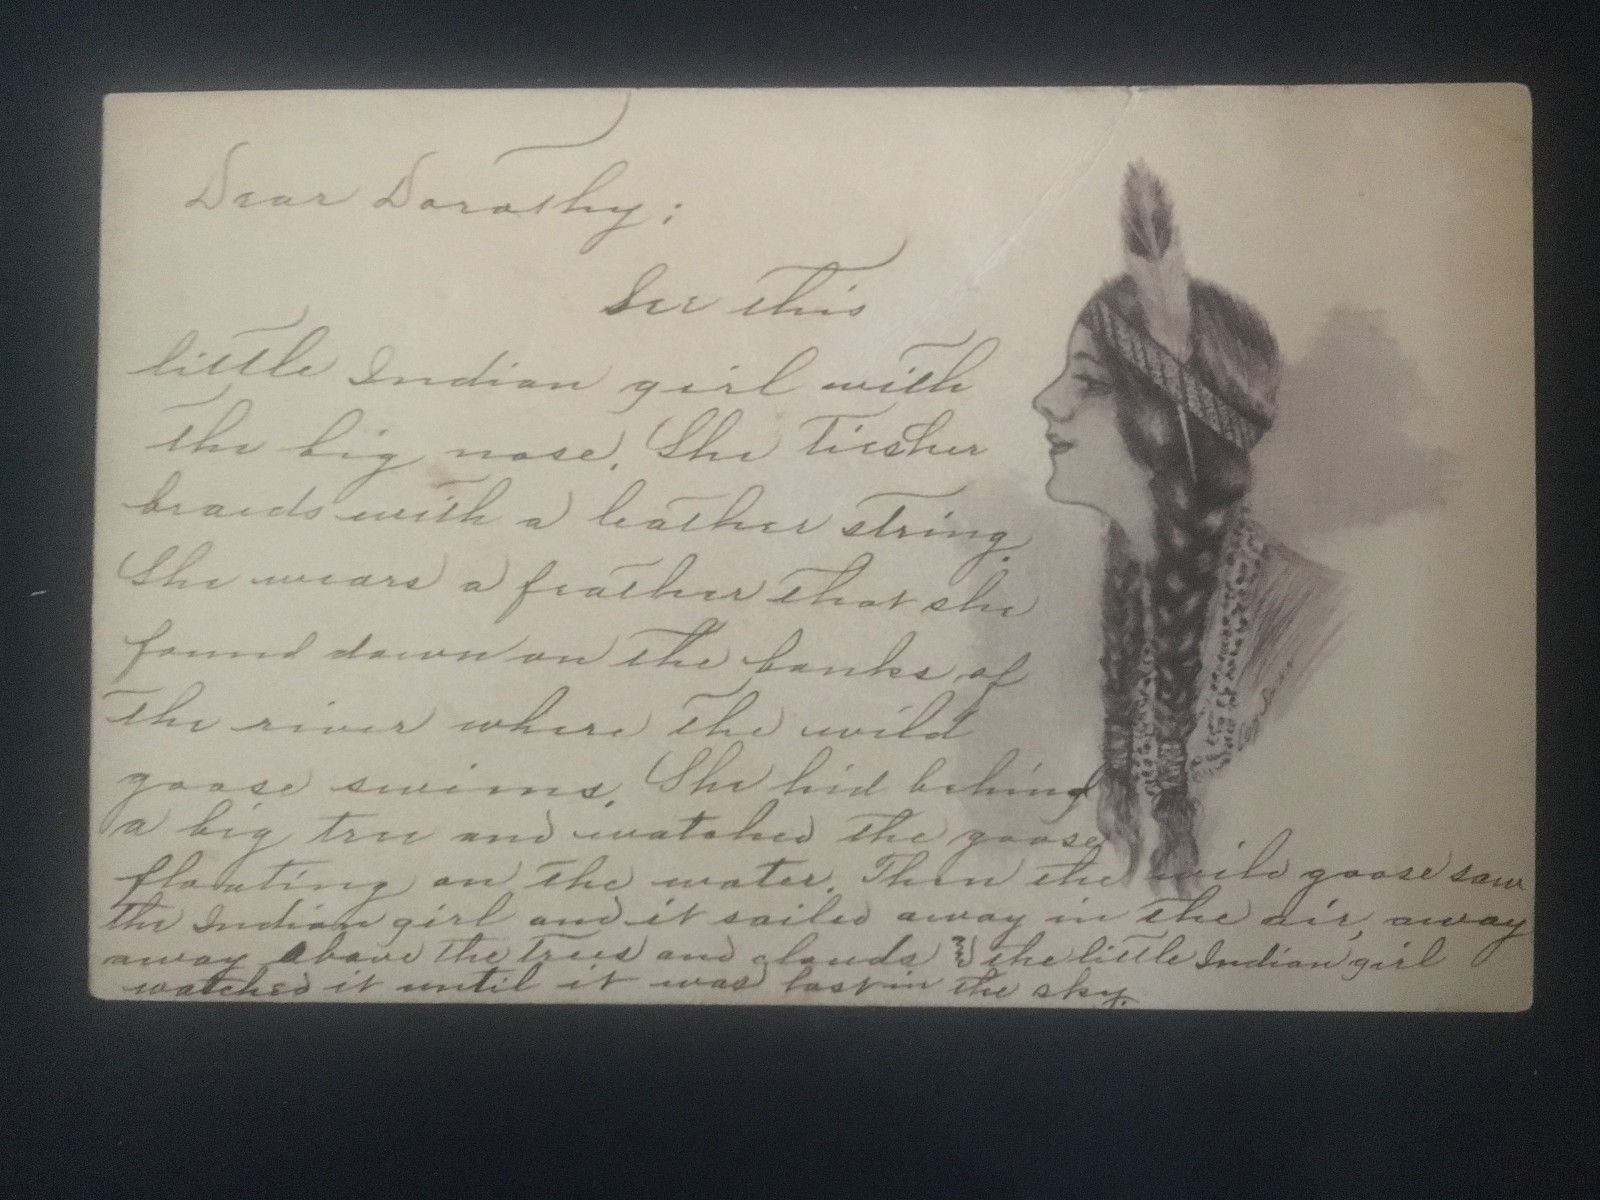 Dear Dorothy;
See this
little Indian girl with
the big nose. She ties her
braids with a leather string.
She wears a feather that she
found down on the banks of
the river where the wild
goose swims. She hid behind
a big tree and watched the goose
floating on the water. Then the wild goose saw
the Indian girl and it sailed away in the air, away
away above the trees and clouds & the little Indian girl
watched it until it was lost in the sky.